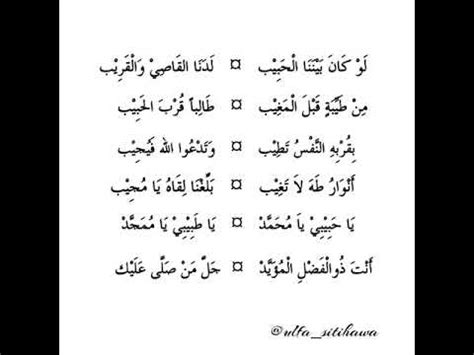 لَوْ كَانَ بَيْنَنَا الْحَبِيْب ¤ لَدَنَا القَاصِيْ وَالْقَرِيْب
مِنْ طَيْبَةٍ قَبْلَ الْمَغِيْب ¤ طَالِباً قُرْبَ الحَبِيْب
بِقُرْبِهِ النَّفْسُ تَطِيْب ¤ وَتَدْعُوا الله فَيُجِيْب
أَنْوَارُ طَهَ لاَ تَغِيْب ¤ بَلِّغْنَا لِقَاهُ يَا مُجِيْب
يَا حَبِيْبِيْ ياَ مُحَمَّدْ ¤ يَا طَبِيْبِيْ يَا مُمَجَّدْ
أَنْتَ ذُوالْفَضْلِ الْمُؤَيَّدْ ¤ جَلَّ مَنْ صَلَّى عَلَيْك
@ulfa_sitihawa